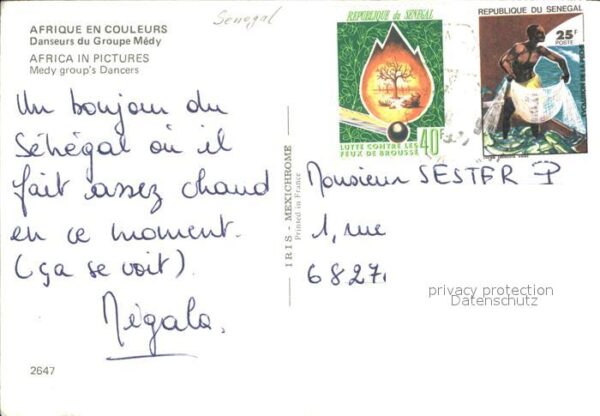 AFRIQUE EN COULEURS
Danseurs du Groupe Médy
AFRICA IN PICTURES
Medy group's Dancers
Senegal
Un bonjour du
Sénégal où il
fait assez chaud
en ce moment.
(ça se voit).
Mégalo.
2647
IRIS - MEXICHROME
Printed in France
REPUBLIQUE du SENEGAL
LUTTE CONTRE LES
FEUX DE BROUSSE
40F
REPUBLIQUE DU SENEGAL
25F
POSTE
Monsieur SESTER P
1, rue
6827
privacy protection
Datenschutz